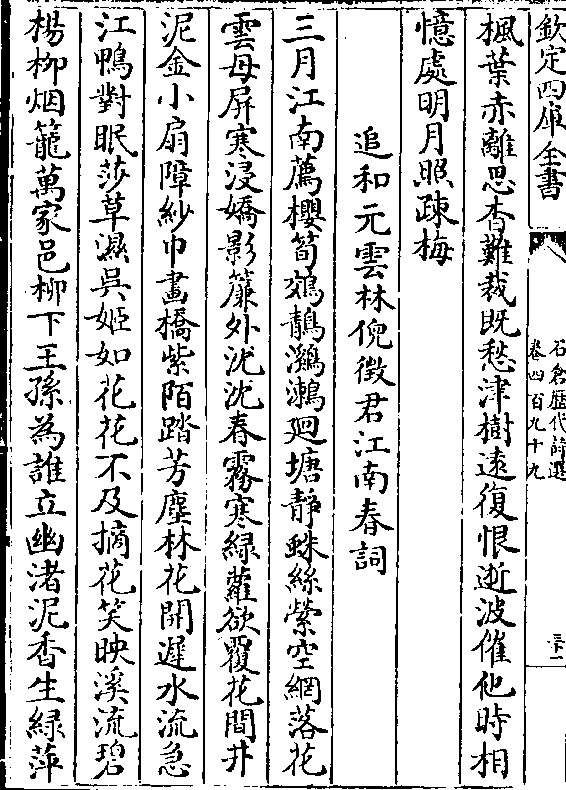 欽定四庫全書
石倉歷代詩選
卷四百九十九
楓葉赤離思杳難裁既愁津樹遠復恨逝波催他時相
憶處明月照疎梅
追和元雲林倪徵君江南春詞
三月江南薦櫻筍鵁鶄鸂鶒廻塘靜蛛絲縈空網落花
雲母屏寒浸嬌影簾外沈沈春霧寒綠蘿欲覆花間井
泥金小扇障紗巾畫橋紫陌踏芳塵林花開遲水流急
江鴨對眠莎草濕吳姬如花花不及摘花笑映溪流碧
楊柳烟籠萬家邑柳下王孫為誰立幽渚泥香生綠萍